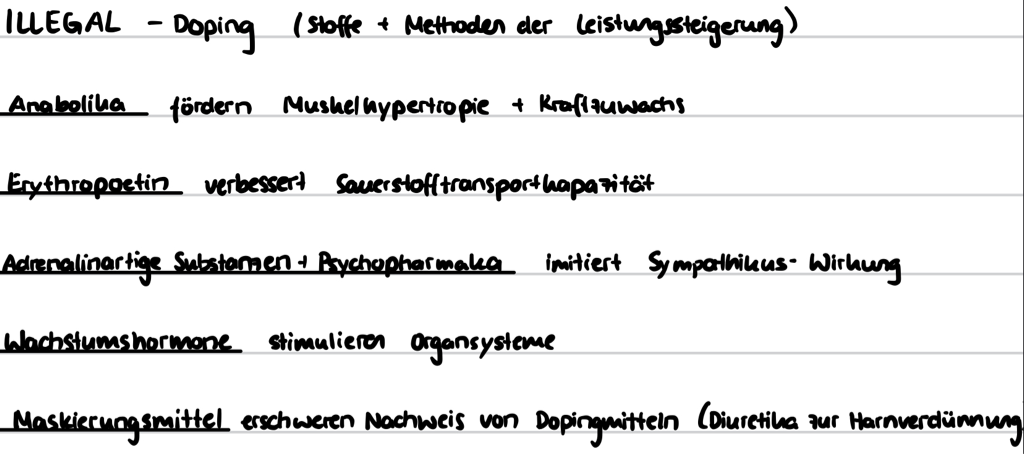 ILLEGAL - Doping (Stoffe + Methoden der Leistungssteigerung)
Anabolika fördern Muskelhypertropie + Kraftzuwachs
Erythropoetin verbessert Sauerstofftransportkapazität
Adrenalinartige Substanzen + Psychopharmaka imitiert Sympathikus-Wirkung
Wachstumshormone stimulieren Organsysteme
Maskierungsmittel erschweren Nachweis von Dopingmitteln (Diuretika zur Harnverdünnung